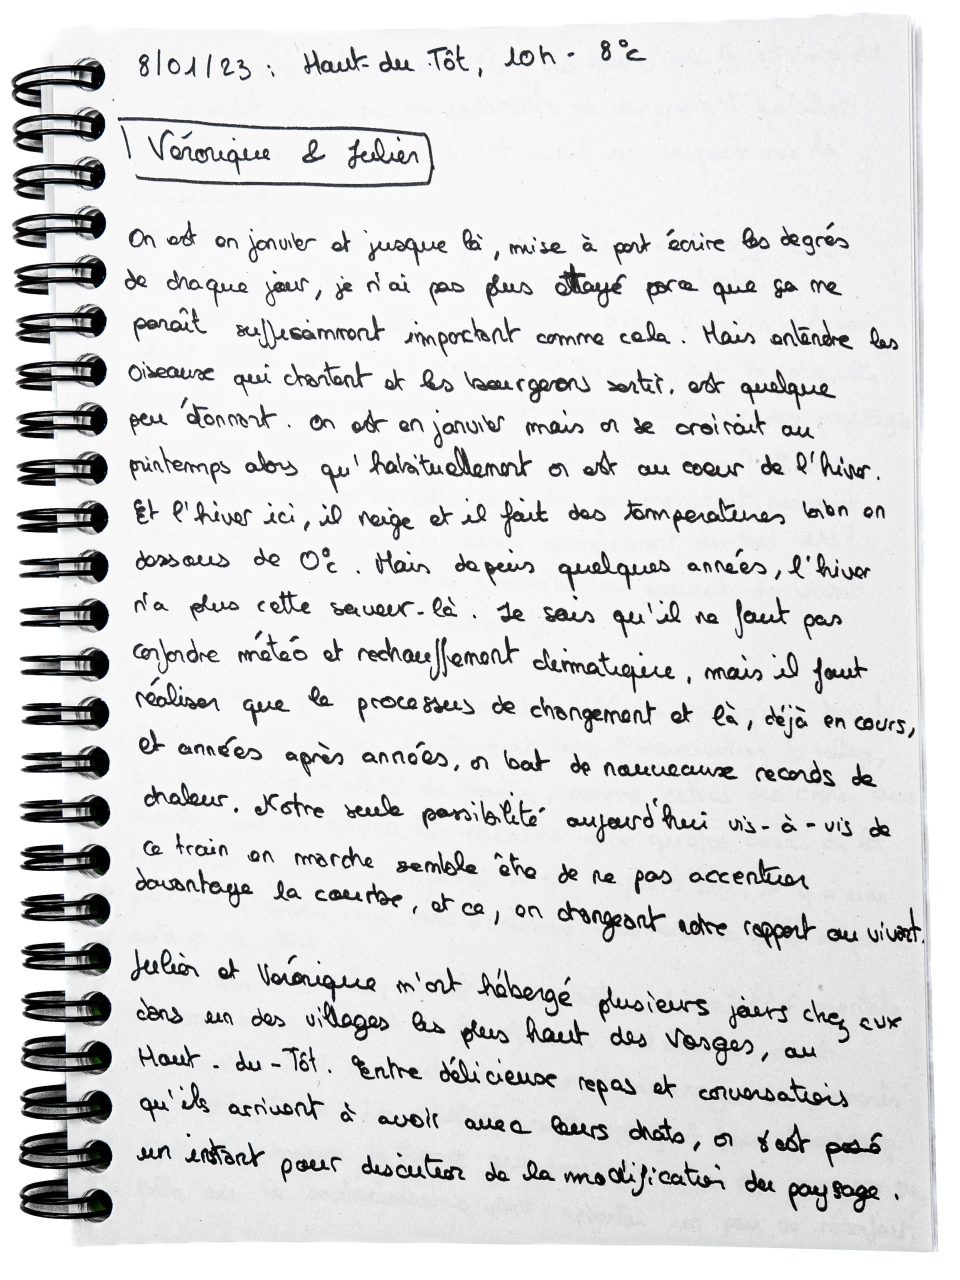 8/01/23 : Haut-du Tôt, 10h - 8°c
Véronique & Julien
On est en janvier et jusque là, mise à part écrire les degrés
de chaque jour, je n'ai pas plus étayé parce que ça me
paraît suffisamment important comme cela. Mais entendre les
oiseaux qui chantent et les bourgeons sortir, est quelque
peu étonnant. On est en janvier mais on se croirait au
printemps alors qu'habituellement on est au coeur de l'hiver.
Et l'hiver ici, il neige et il fait des temperatures bien en
dessous de 0°c. Mais depuis quelques années, l'hiver
n'a plus cette saveur-là. Je sais qu'il ne faut pas
confondre météo et rechauffement climatique, mais il faut
réaliser que le processus de changement et là, déjà en cours,
et années après années, on bat de nouveaux records de
chaleur. Notre seule possibilité aujourd'hui vis-à-vis de
ce train en marche semble être de ne pas accentuer
davantage la courbe, et ce, en changeant notre rapport au vivant.
Julien et Véronique m'ont hébergé plusieurs jours chez eux
dans un des villages les plus haut des Vosges, au
Haut-du-Tôt. Entre délicieux repas et conversations
qu'ils arrivent à avoir avec leurs chats, on s'est posé
un instant pour discuter de la modification du paysage.